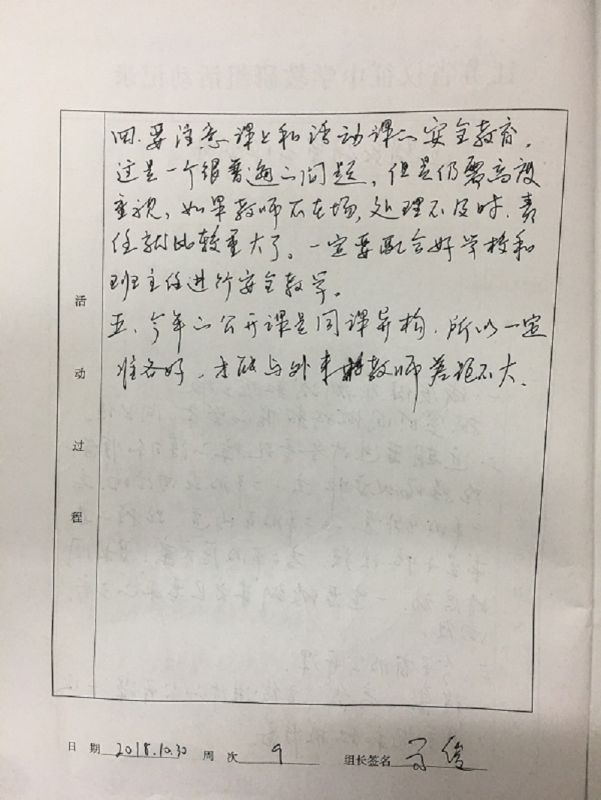 四.要注意课上和活动课的安全教育.
这是一个很普遍的问题,但是仍需高度
重视,如果教师不在场,处理不及时,责
任就比较重大了。一定要配合好学校和
班主任进行安全教学。
五、今年的公开课是同课异构,所以一定
准备好,才能与外来教师差距不大.
活动过程
日 期 2018.10.30 周 次 9 组长签名